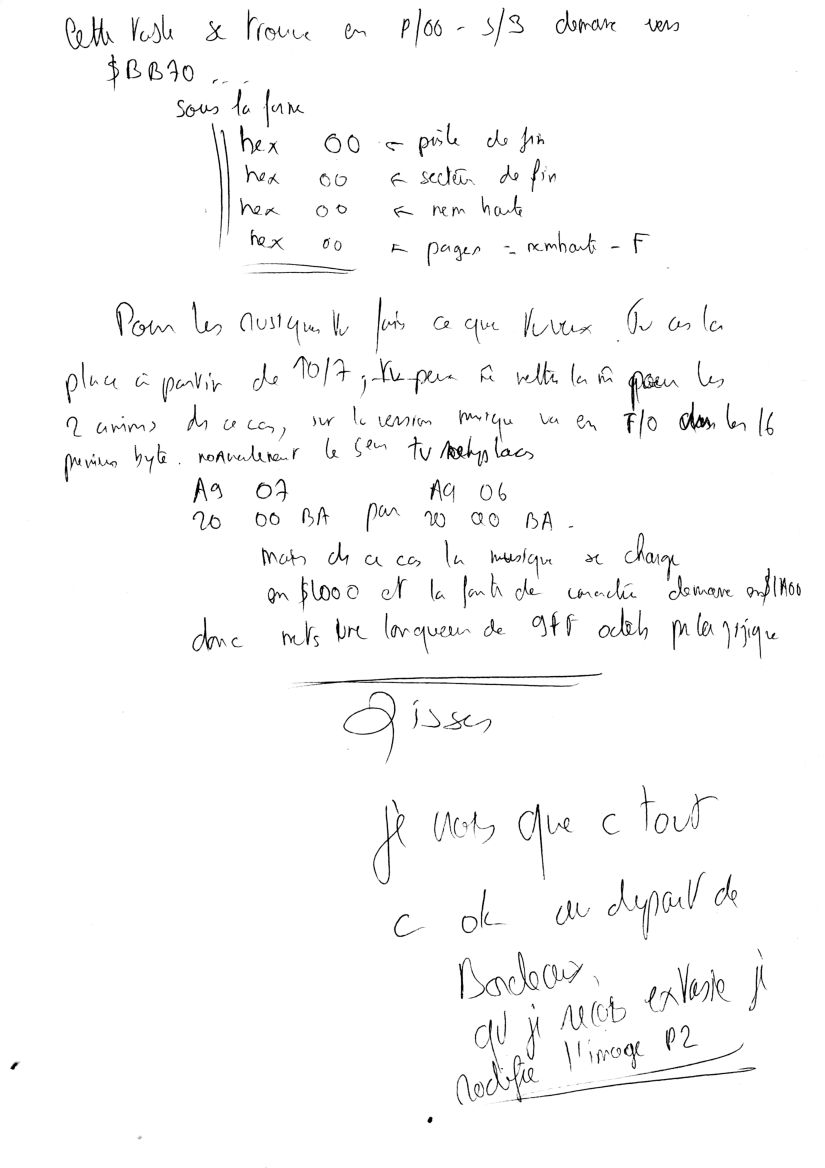 Cette table se trouve en P/00 - S/3 démare vers
$BB70 ....
sous la forme
hex 00 ← piste de fin
hex 00 ← secteur de fin
hex 00 ← mem haute
hex 00 ← pages = memhaute - F
Pour les musiques tu fais ce que tu veux. Tu as la
place à partir de 10/7, tu peux mettre la pour les
2 anims ds ce cas, sur la version musique va en F/0 dans les 16
premiers byte. normalement le tu remplaces
A9 07 A9 06
20 00 BA par 20 00 BA.
mais ds ce cas la musique se charge
en $1000 et la fonte de caractère démare en $1A00
donc mets une longueur de 9FF octets pr la
je vois que c tout
c ok au départ de
Bordeaux,
qd je reçois je
modifie l'image P2